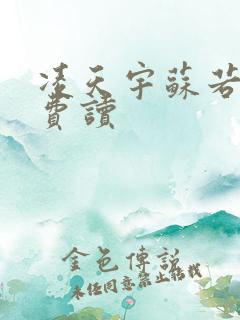 凌天宇蘇若
費讀
金色傳說
未經同意禁止轉載